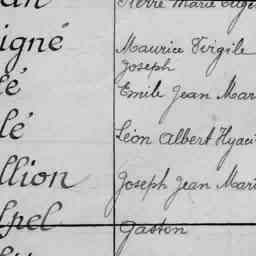 Pierre Marie
igné Maurice Virgile
Joseph
é Emile Jean Mar
lé Léon Albert Hyaci
llion Joseph Jean Mari
pel Gaston